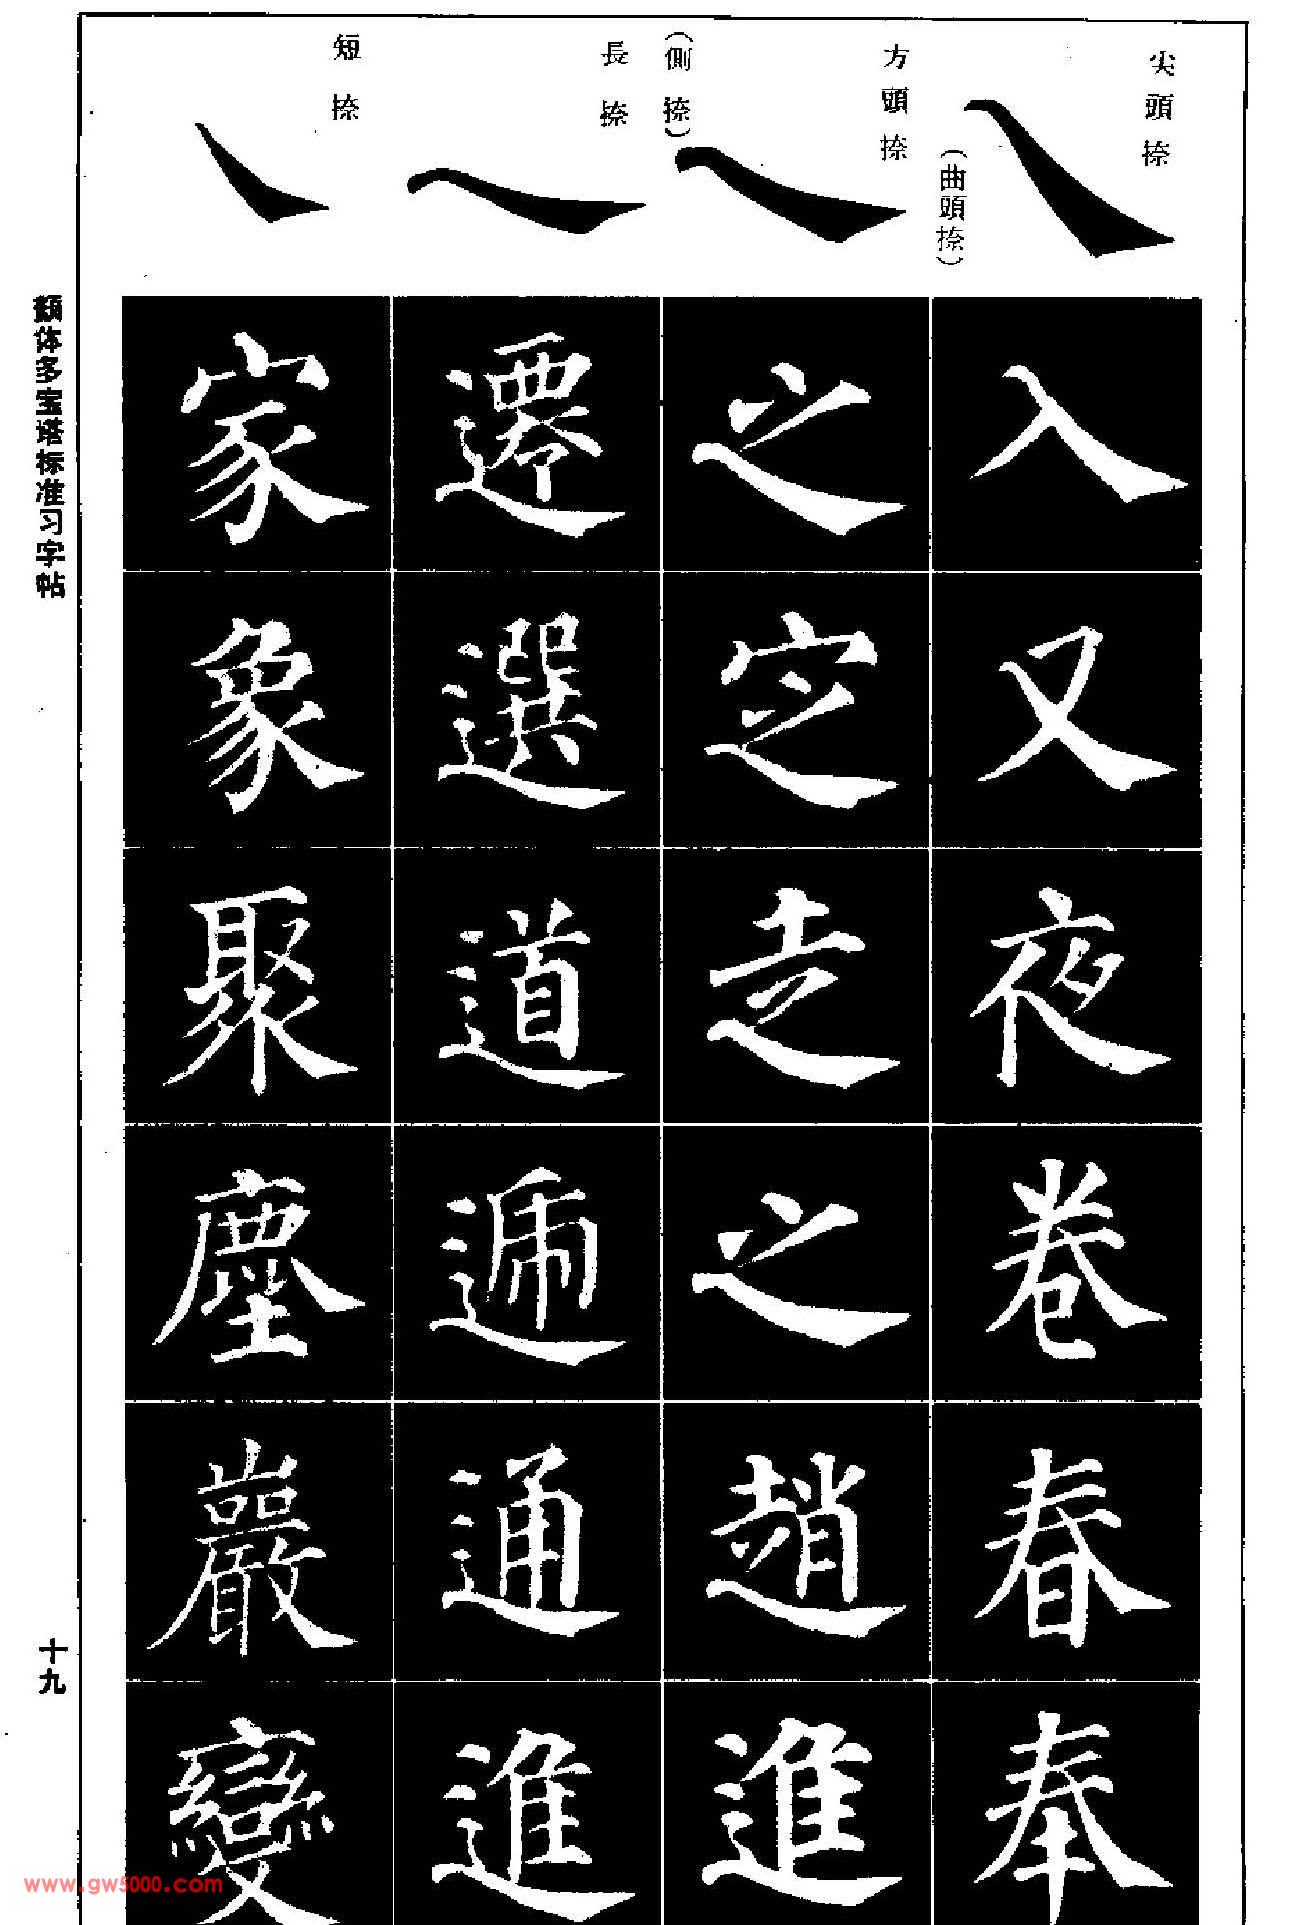 尖頭捺
(曲頭捺)
方頭捺
(側捺)
長捺
短捺
入又夜卷春奉
之定走之趙進
遷選道遞通進
家象聚塵巖變
顏体多宝塔标准习字帖
十九
www.gw5000.com